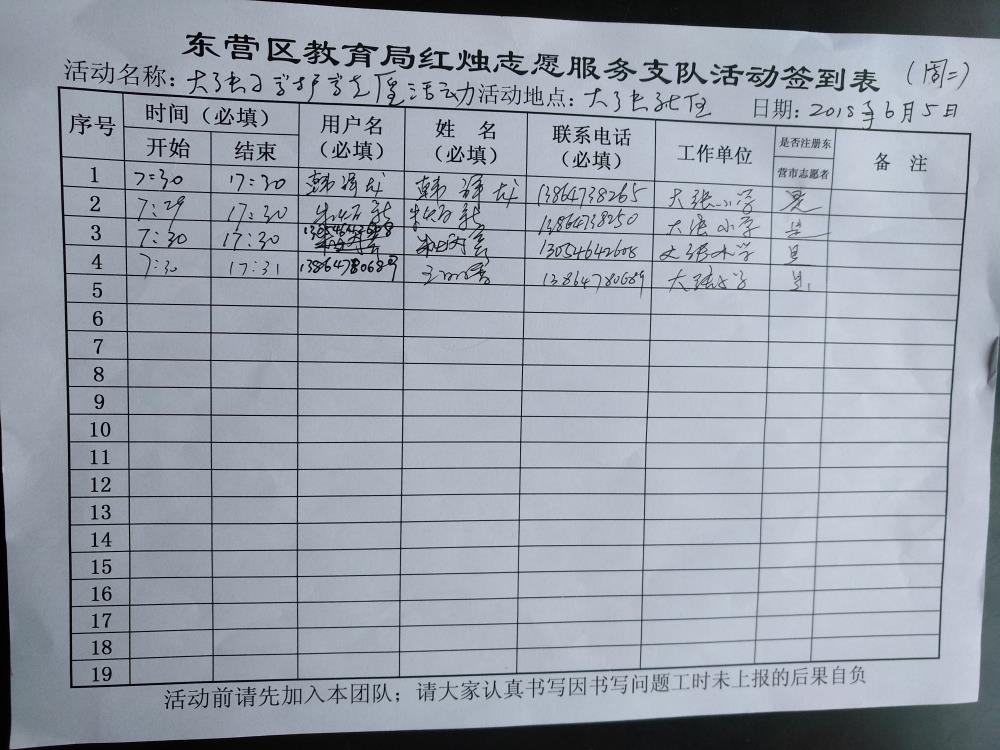 东营区教育局红烛志愿服务支队活动签到表 （周二）
活动名称：大张小学护学 活动 活动地点：大张社区 日期：2018年6月5日
序号 时间（必填） 用户名（必填） 姓 名（必填） 联系电话（必填） 工作单位 是否注册东营市志愿者 备 注
开始 结束
1 7:30 17:30 韩 韩 13864738265 大张小学 是
2 7:29 17:30 朱 新 朱 新 13864738250 大张小学 是
3 7:30 17:30 13054642608 13054642608 大张小学 是
4 7:30 17:31 13864780689 王 13864780689 大张小学 是
5
6
7
8
9
10
11
12
13
14
15
16
17
18
19
活动前请先加入本团队；请大家认真书写因书写问题工时未上报的后果自负